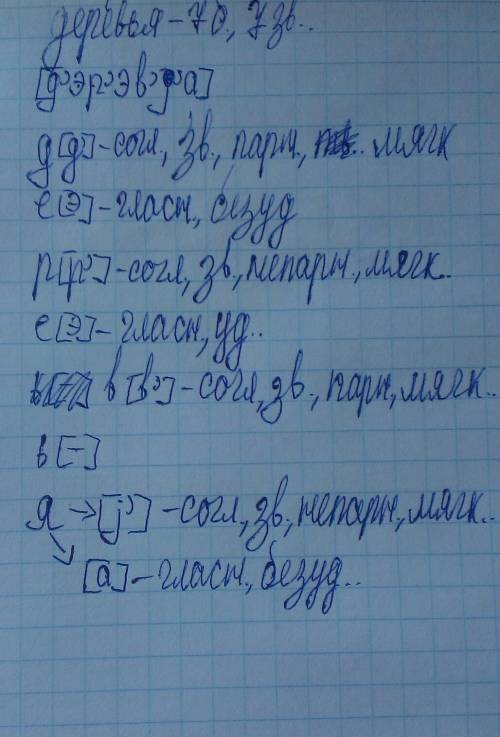 деревья - 7 б, 7 зв..
[д'эр'эв'j'а]
д [д] - согл, зв., парн., мягк
е [э] - гласн., безуд
р [р'] - согл, зв., непарн., мягк..
е [э] - гласн, уд..
в [в'] - согл, зв., парн, мягк..
ь [-]
я → [j'] - согл, зв., непарн, мягк..
↘ [а] - гласн., безуд..